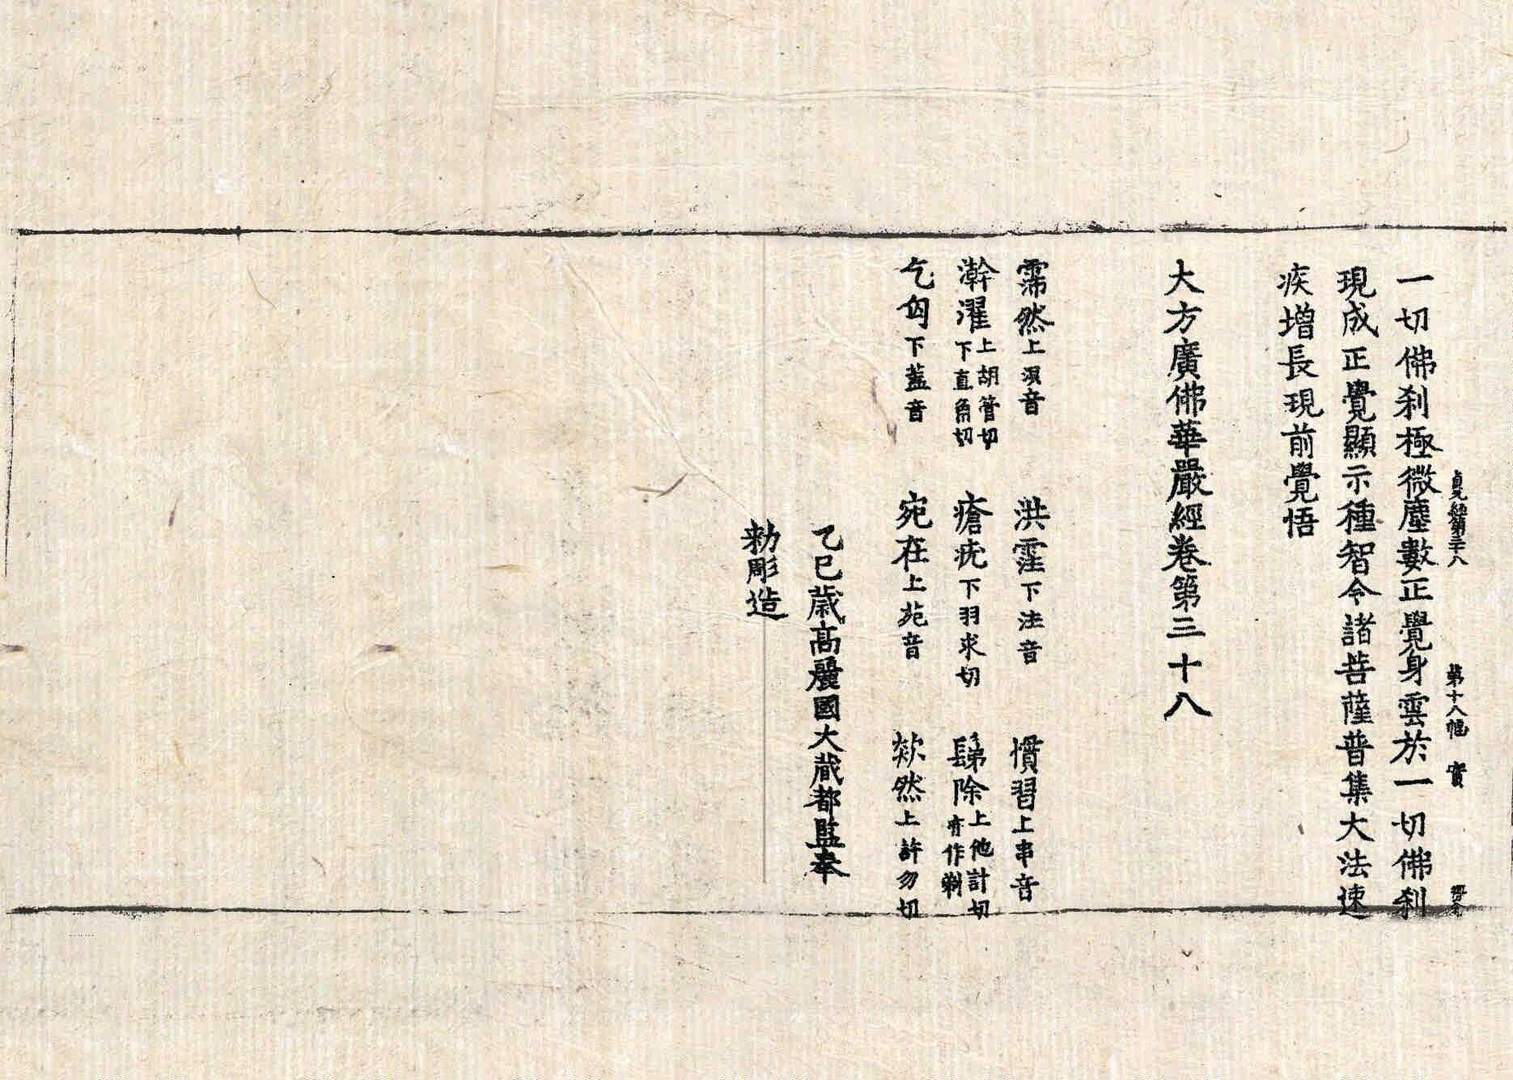 貞元經第三十八 第十八幅 實
一切佛刹極微塵數正覺身雲於一切佛刹
現成正覺顯示種智令諸菩薩普集大法速
疾增長現前覺悟
大方廣佛華嚴經卷第三十八
霈然上浿音 洪霔下注音 慣習上串音
澣濯上胡管切下直角切 瘡疣下羽求切 鬀除上他計切亦作剃
乞匃下蓋音 宛在上苑音 欻然上許勿切
乙巳歲高麗國大藏都監奉
勅彫造